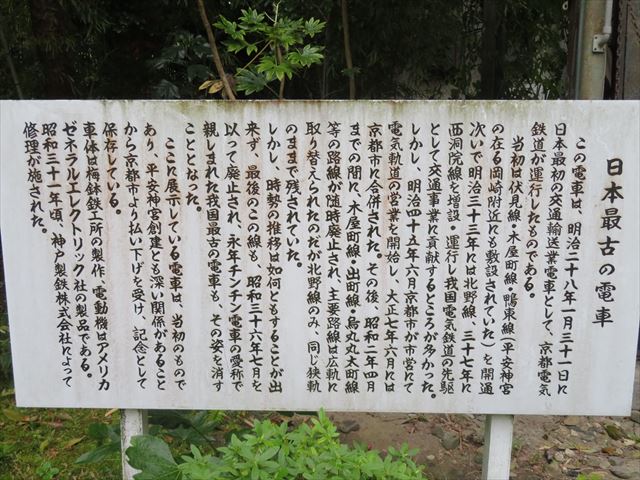 日本最古の電車
この電車は、明治二十八年一月三十一日に
日本最初の交通輸送業電車として、京都電気
鉄道が運行したものである。
当初は伏見線・木屋町線・鴨東線(平安神宮
の在る岡崎附近にも敷設されていた)を開通
次いで明治三十三年には北野線、三十七年に
西洞院線を増設・運行し我国電気鉄道の先駆
として交通事業に貢献するところが多かった。
しかし、明治四十五年六月京都市が市営にて
電気軌道の営業を開始し、大正七年六月には
京都市に合併された。その後、昭和二年四月
までの間に、木屋町線・出町線・烏丸丸太町線
等の路線が随時廃止され、主要路線は広軌に
取り替えられたのだが北野線のみ、同じ狭軌
のままで残されていた。
しかし、時勢の推移は如何ともすることが出
来ず、最後のこの線も、昭和三十六年七月を
以って廃止され、永年チンチン電車の愛称で
親しまれた我国最古の電車も、その姿を消す
こととなった。
ここに展示している電車は、当初のもので
あり、平安神宮創建とも深い関係があること
から京都市より払い下げを受け、記念として
保存している。
車体は梅鉢鉄工所の製作・電動機はアメリカ
ゼネラルエレクトリック社の製品である。
昭和三十一年頃、神戸製鉄株式会社によって
修理が施された。